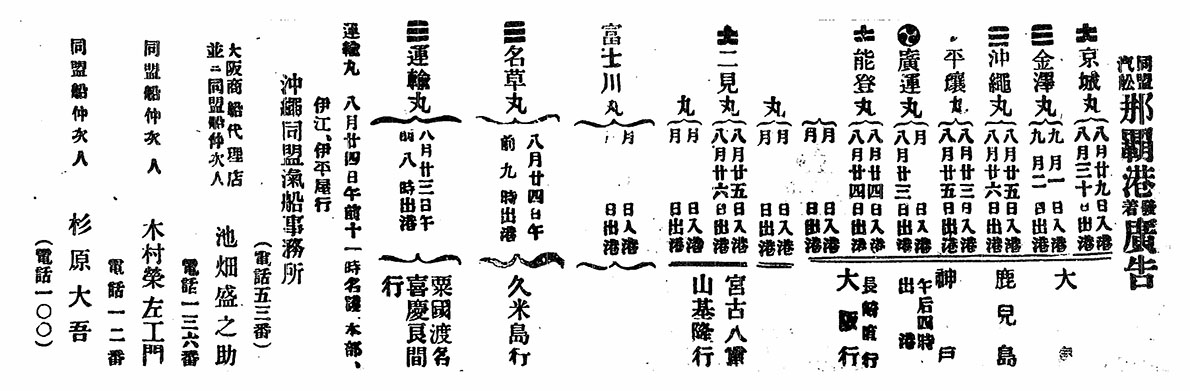 同盟汽舩那覇港發着廣告
京城丸 八月廿九日入港 八月三十日出港
金澤丸 九月一日入港 九月二日出港
沖繩丸 八月廿五日入港 八月廿六日出港
平壤丸 八月廿三日入港 八月廿五日出港
廣運丸 月日入港 八月廿三日出港
能登丸 八月廿四日入港 八月廿四日出港
月日入港 月日出港
大
鹿兒島
神戸
午后四時出港
長崎直行
大阪行
丸 月日入港 月日出港
二見丸 八月廿五日入港 八月廿六日出港
丸 月日入港 月日出港
宮古八重山基隆行
富士川丸 月日入港 月日出港
名草丸 八月廿四日午前九時出港 久米島行
運輸丸 八月廿三日午前八時出港 粟國渡名喜慶良間行
運輸丸 八月廿四日午前十一時名護、本部、
伊江、伊平屋行
沖繩同盟滊船事務所
(電話五三番)
大阪商船代理店
並ニ同盟船仲次人 池畑盛之助
電話一三六番
同盟船仲次人 木村榮左工門
電話一二番
同盟船仲次人 杉原大吾
(電話一〇〇)